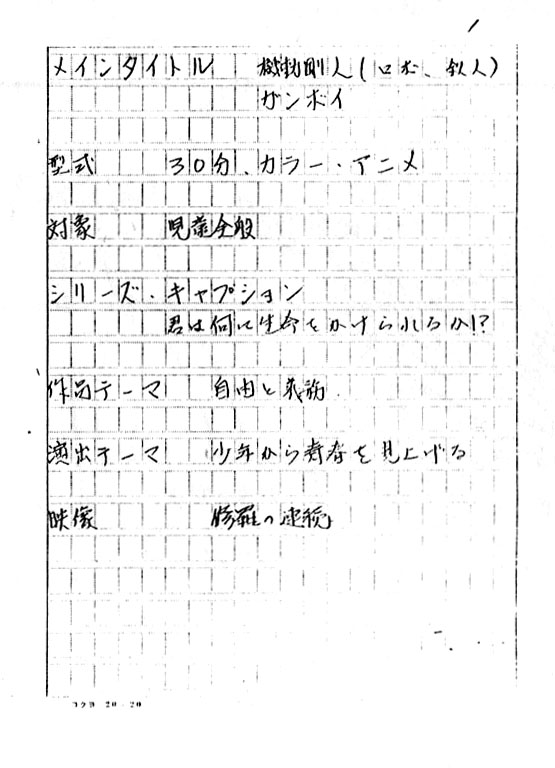 1
メインタイトル 機動剛人(ロボ、鉄人)
ガンボイ
型式 30分、カラー・アニメ
対象 児童全般
シリーズ・キャプション
君は何に生命をかけられるか!?
作品テーマ 自由と義務
演出テーマ 少年から青春を見上げる
映像 修羅の連続
コクヨ 20-20